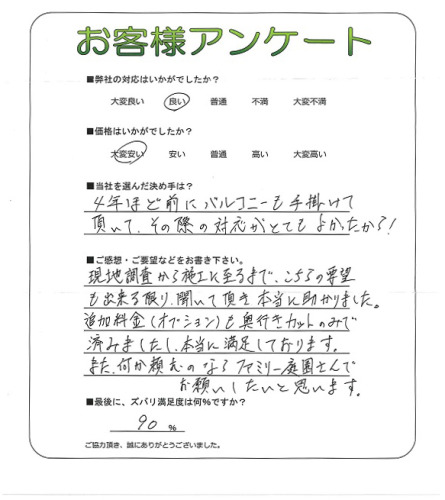 お客様アンケート
■弊社の対応はいかがでしたか？
大変良い 良い 普通 不満 大変不満
■価格はいかがでしたか？
大変安い 安い 普通 高い 大変高い
■当社を選んだ決め手は？
4年ほど前にバルコニーも手掛けて
頂いて、その際の対応がとてもよかたから！
■ご感想・ご要望などをお書き下さい。
現地調査から施工に至るまで、こちらの要望
も出来る限り、聞いて頂き本当に助かりました。
追加料金(オプション)も奥行きカットのみで
済みましたし、本当に満足しております。
また、何か頼むのならファミリー庭園さんで
お願いしたいと思います。
■最後に、ズバリ満足度は何％ですか？
90 %
ご協力頂き、誠にありがとうございました。